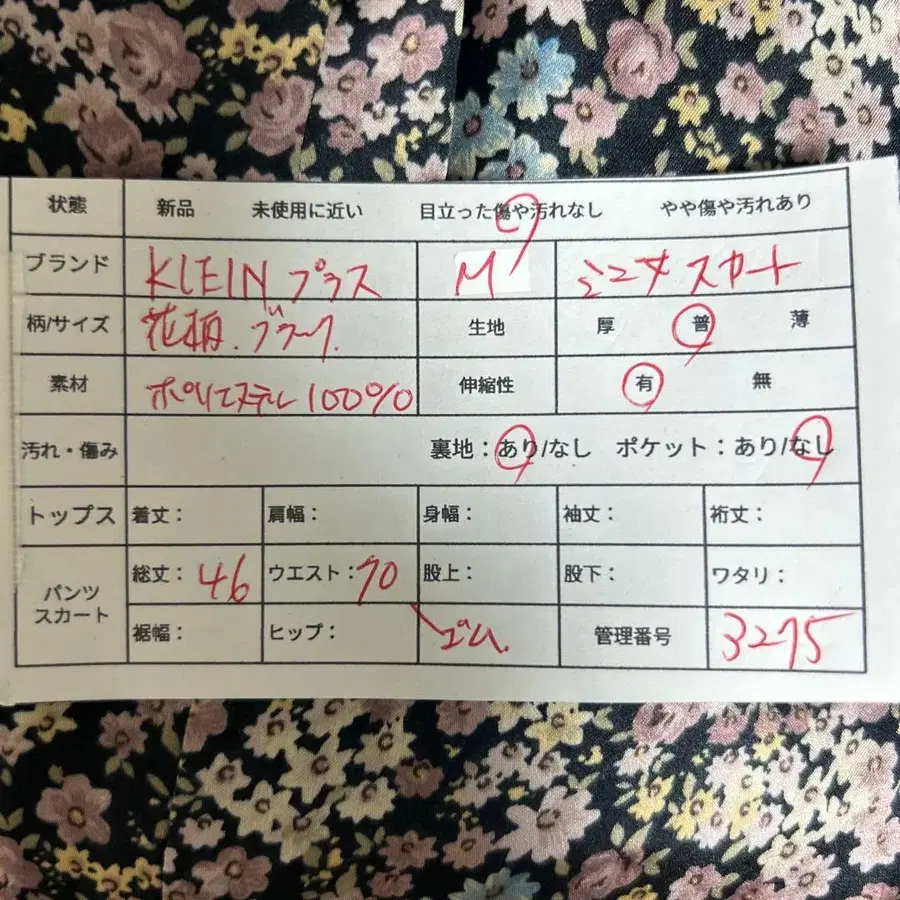 状態 新品 未使用に近い 目立った傷や汚れなし やや傷や汚れあり
ブランド KLEIN プラス M ミニスカート
柄/サイズ 花柄.ブラック. 生地 厚 普 薄
素材 ポリエステル100% 伸縮性 有 無
汚れ・傷み 裏地：あり/なし ポケット：あり/なし
トップス 着丈： 肩幅： 身幅： 袖丈： 裄丈：
パンツ スカート 総丈：46 ウエスト：70 股上： 股下： ワタリ：
裾幅： ヒップ： ゴム. 管理番号 3275